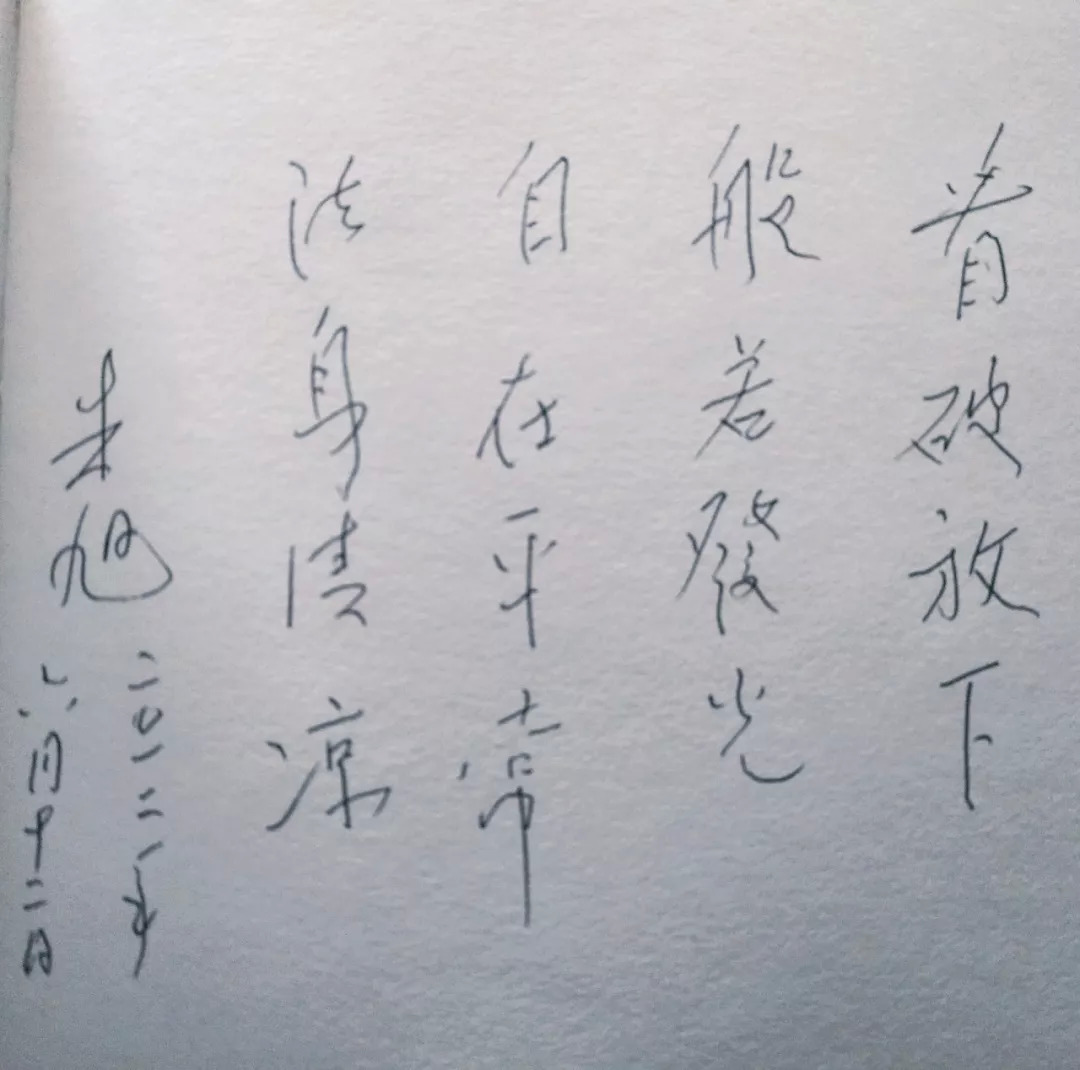 看破放下
般若發光
自在平常
法身清凉
朱旭
二〇一二年
六月十二日